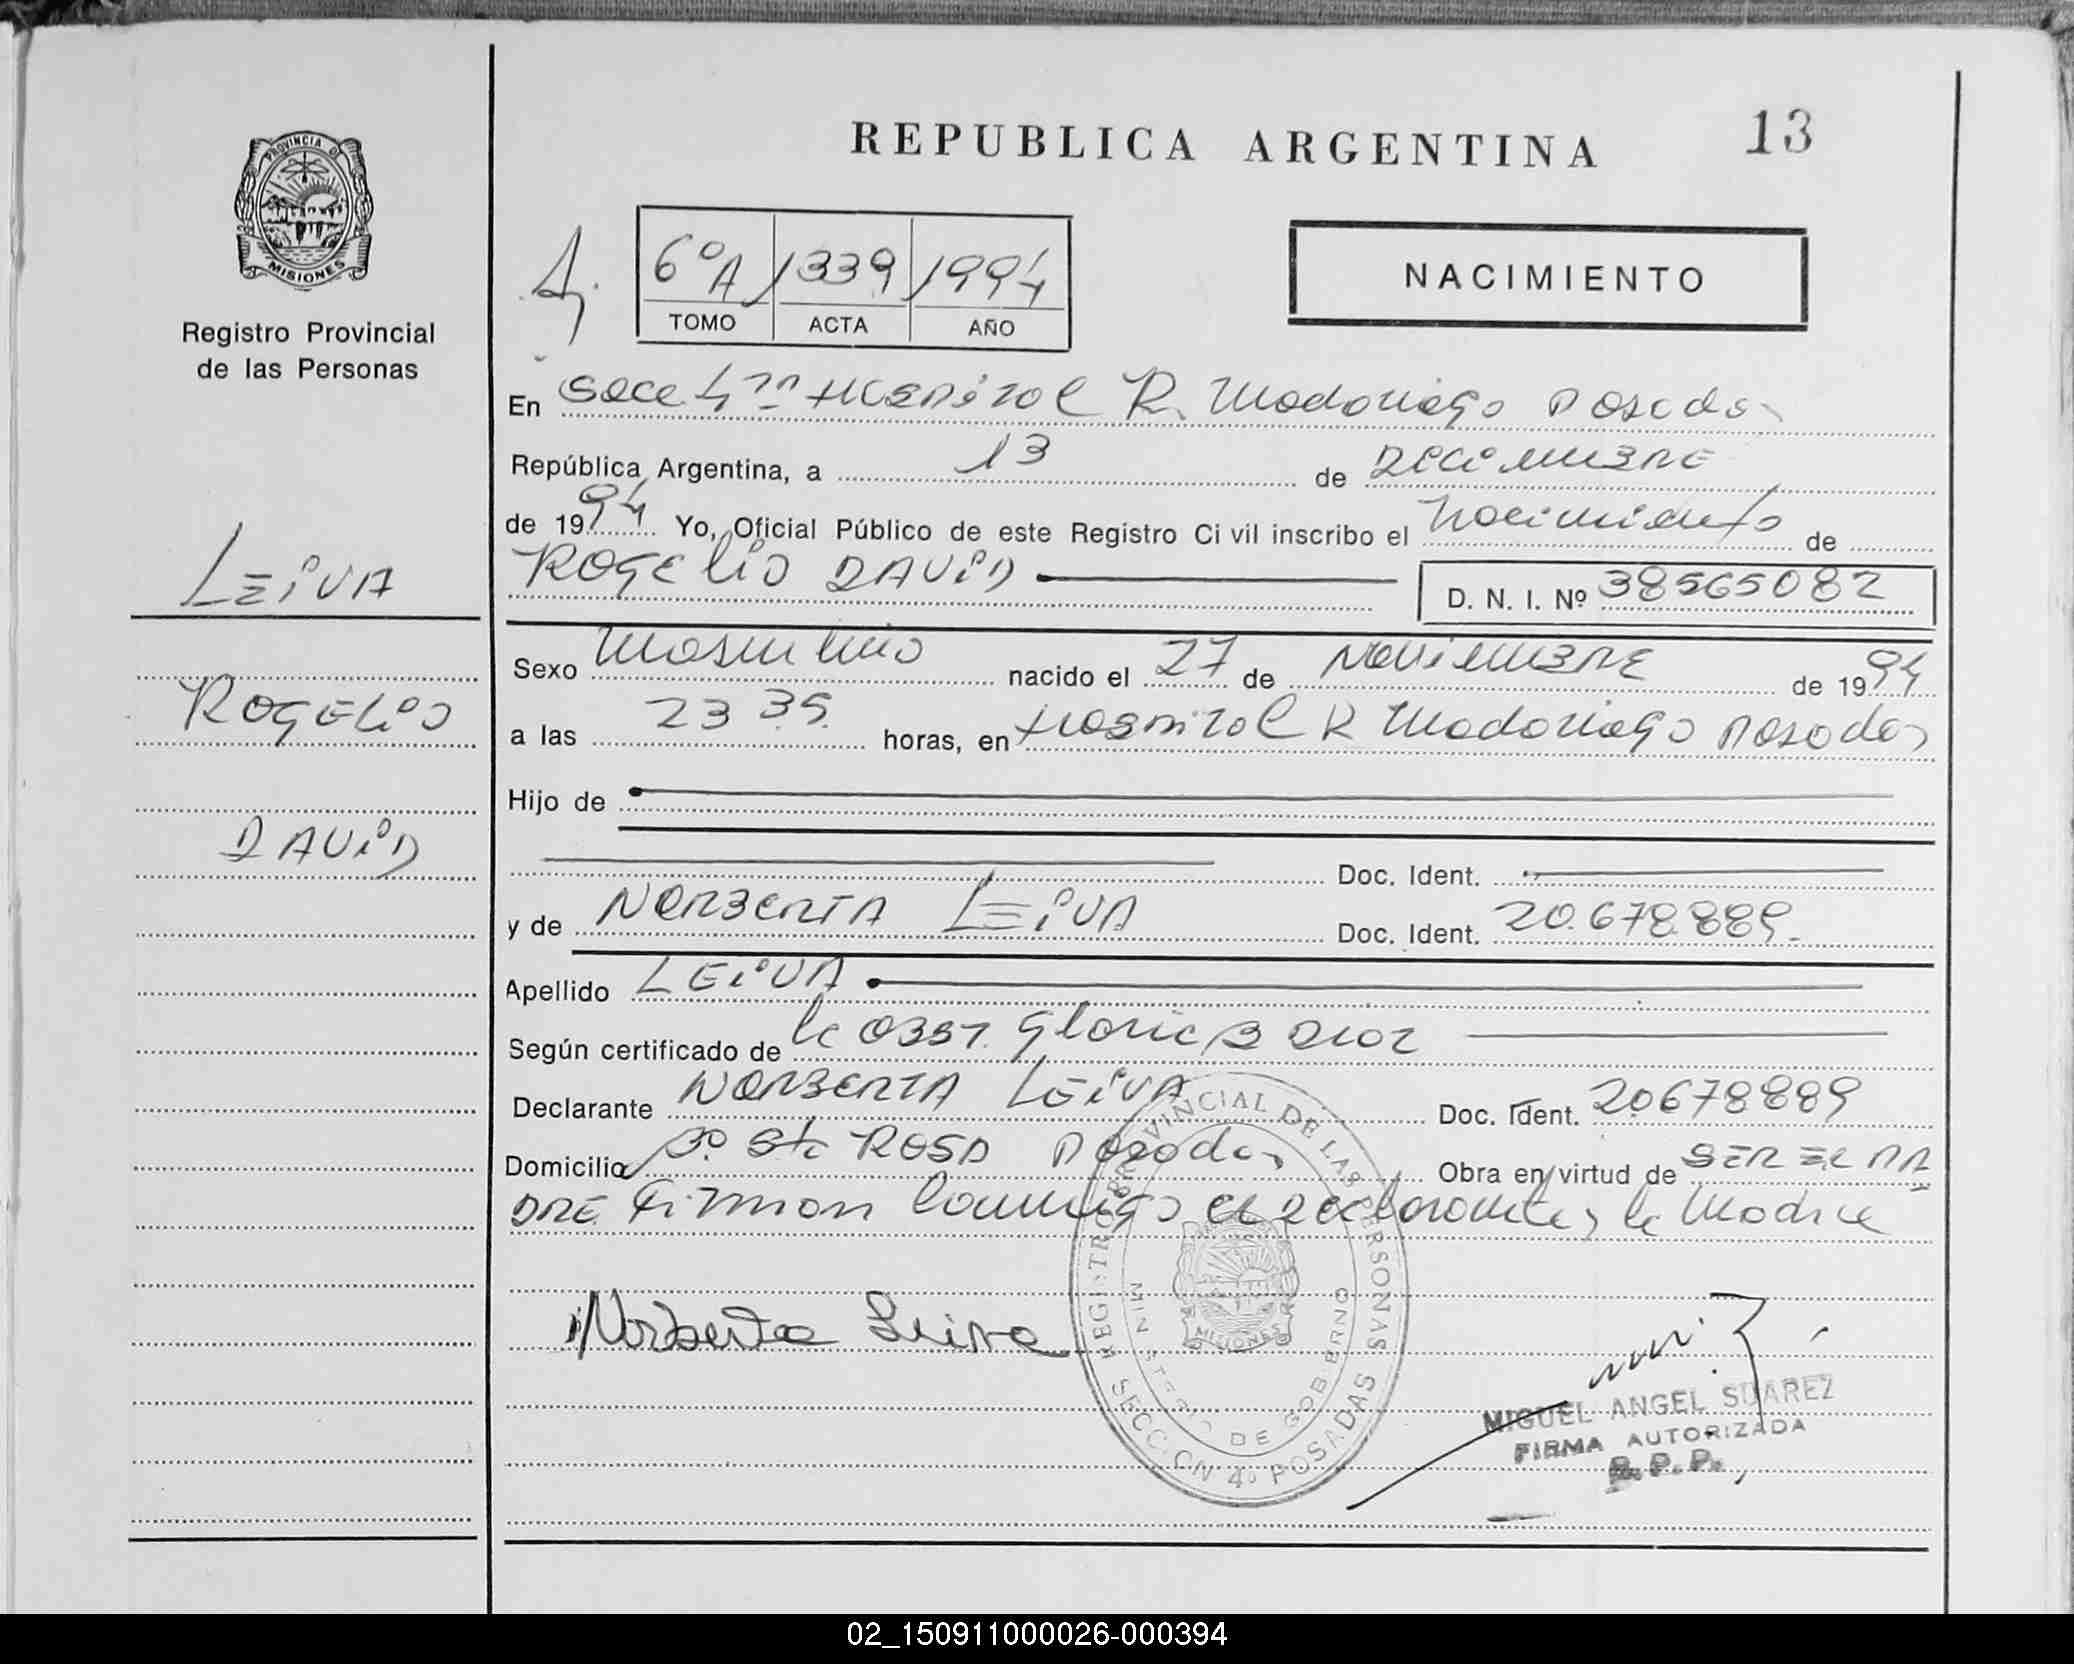 REPUBLICA ARGENTINA 13
PROVINCIA DE
MISIONES
Registro Provincial
de las Personas
6º A 1339 1994
TOMO ACTA AÑO
NACIMIENTO
En Secc 4ta Hospital R. Madariaga Posadas
República Argentina, a 13 de Diciembre
de 1994 Yo, Oficial Público de este Registro Civil inscribo el Nacimiento de
ROGELIO DAVID
D. N. I. Nº 38565082
LEIVA
ROGELIO
DAVID
Sexo Masculino nacido el 27 de Noviembre de 1994
a las 23 35 horas, en Hospital R Madariaga Posadas
Hijo de
Doc. Ident.
y de NORBERTA LEIVA Doc. Ident. 20.678.889.
Apellido LEIVA
Según certificado de la Obst. Gloria B Diaz
Declarante NORBERTA LEIVA Doc. Ident. 20678889
Domicilio Bº Sta ROSA Posadas Obra en virtud de SER EL PA
DRE Firman conmigo el declarante y la Madre
Norberta Leiva
REGISTRO PROVINCIAL DE LAS PERSONAS
MINISTERIO DE GOBIERNO
MISIONES
SECCION 4º POSADAS
MIGUEL ANGEL SUAREZ
FIRMA AUTORIZADA
R. P. P.
02_150911000026-000394